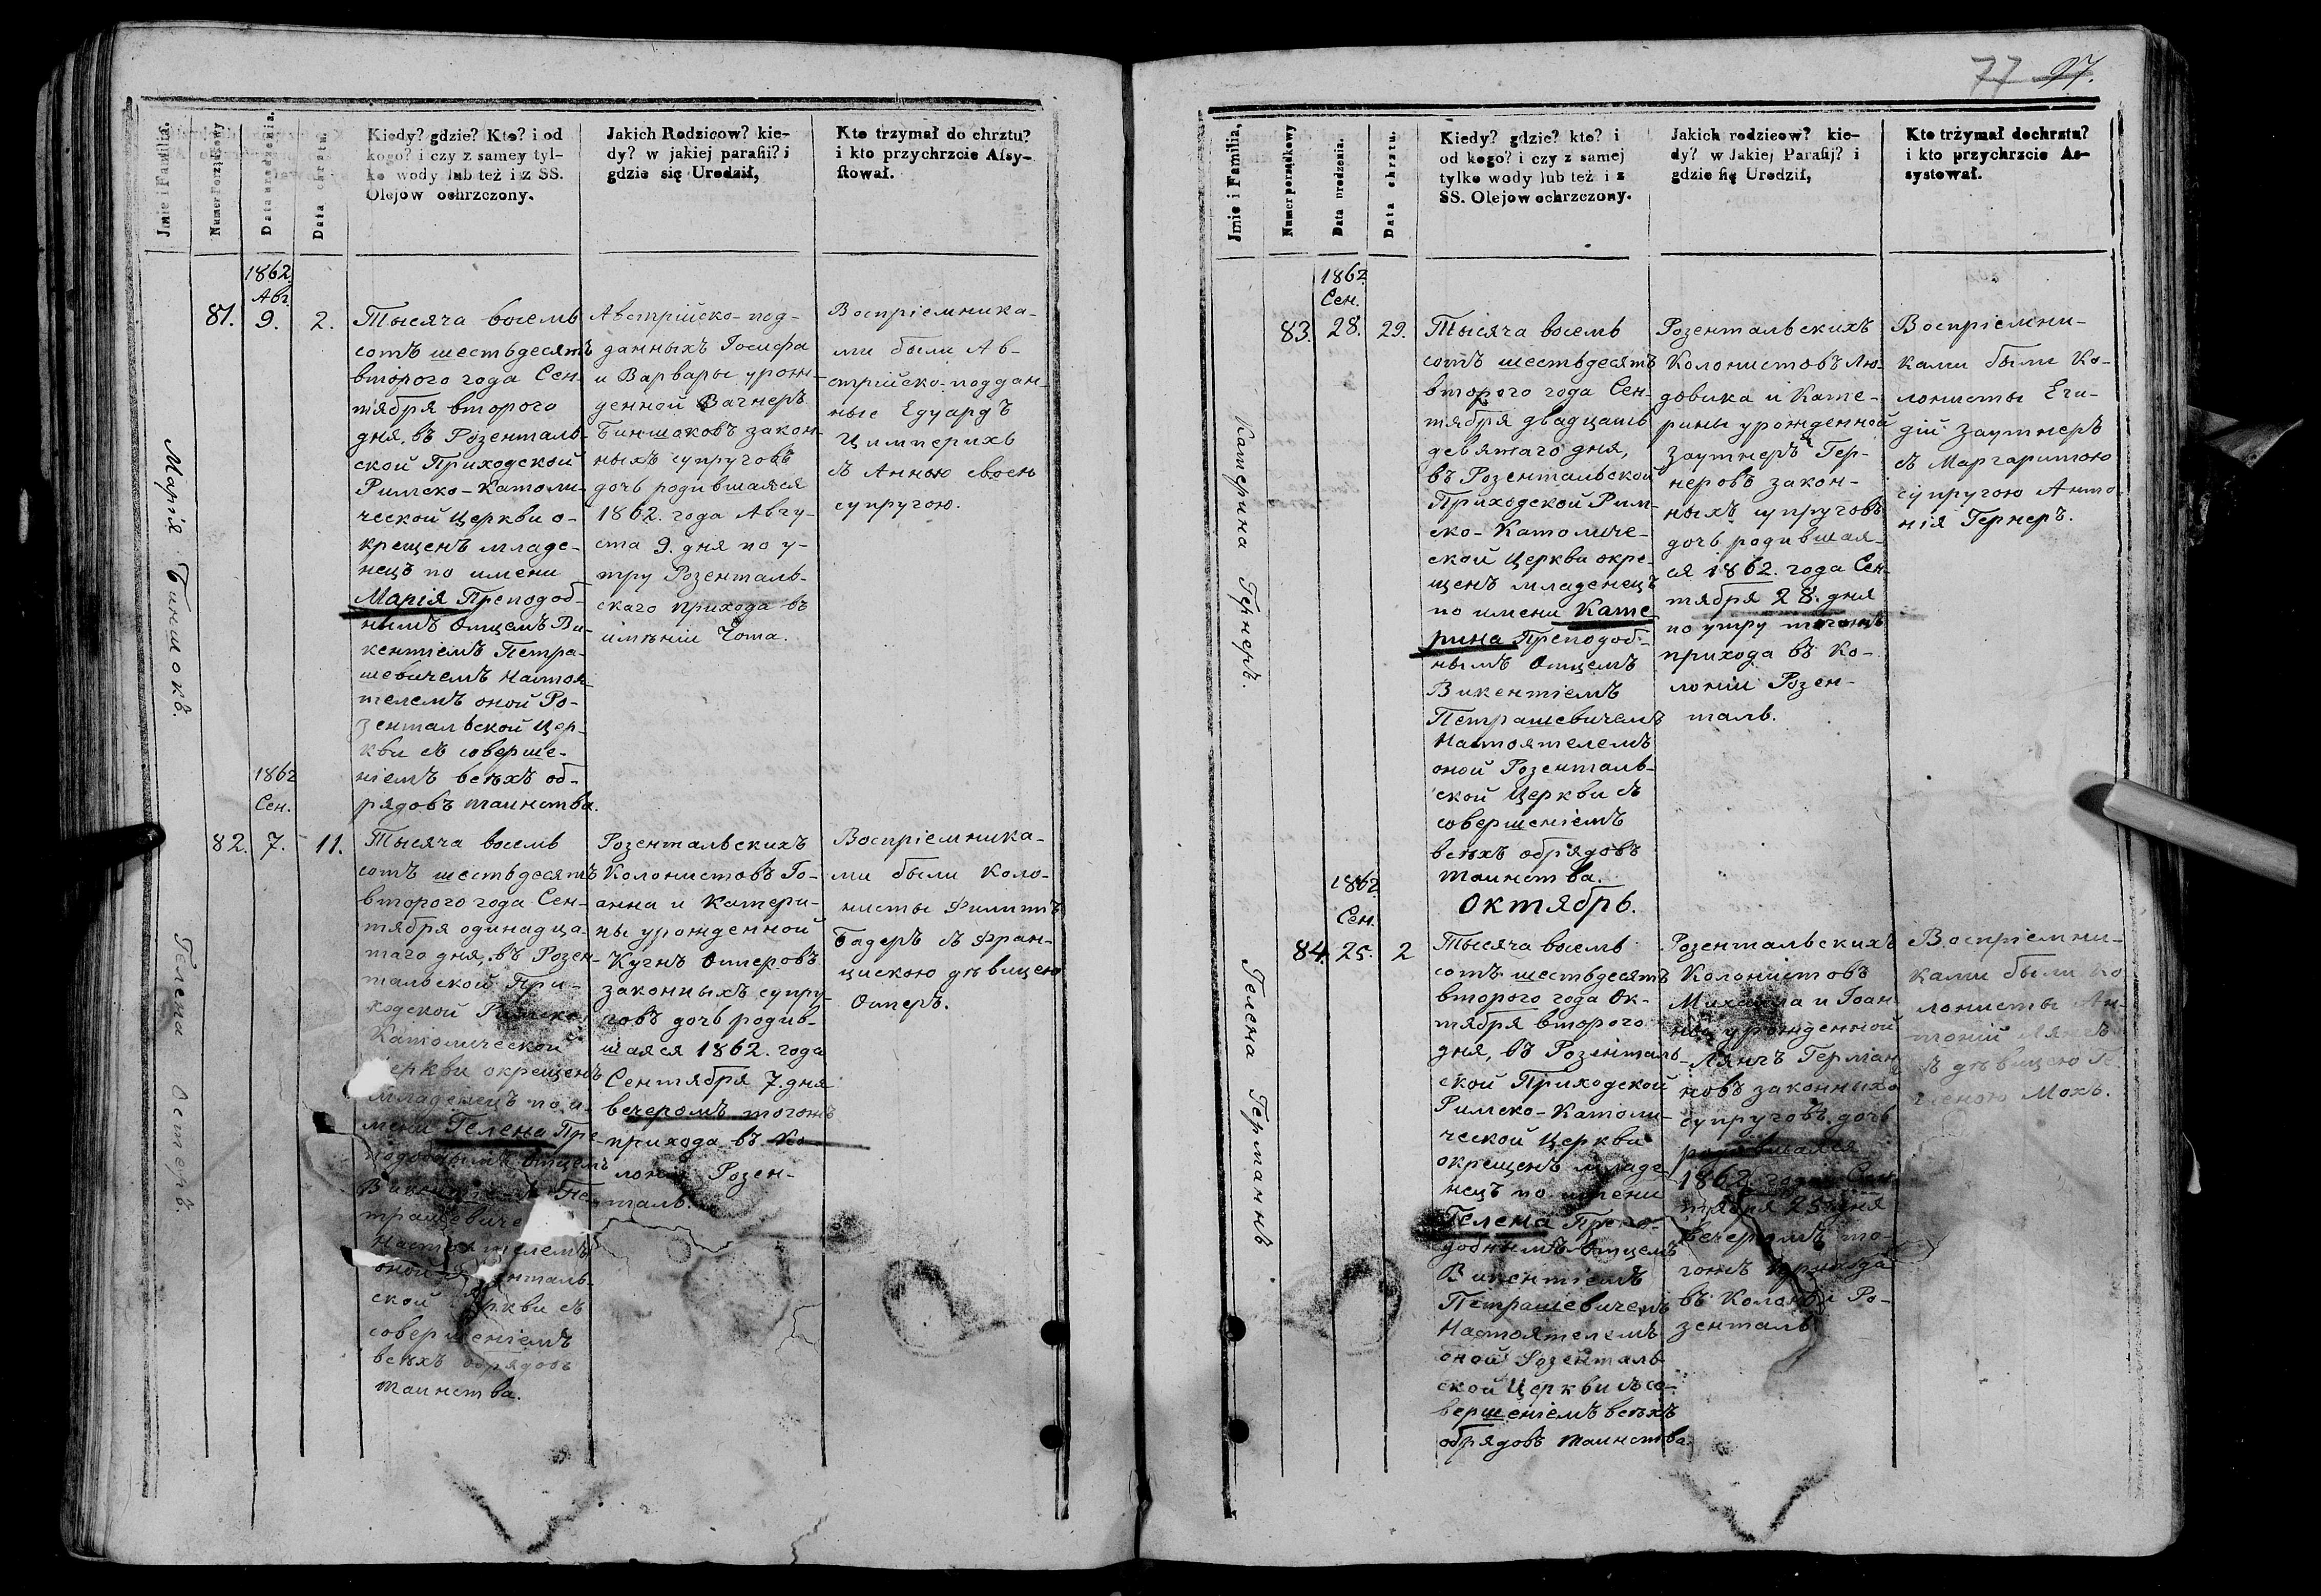 Jmie i Familia.
Numer Porządkowy
Data urodzenia.
Data chrztu.
Kiedy? gdzie? Kto? i od
kogo? i czy z samey tyl-
ko wody lub też i z SS.
Olejow ochrzczony.
Jakich Rodzicow? kie-
dy? w jakiej parafii? i
gdzie się Urodził,
Kto trzymał do chrztu?
i kto przychrzcie Afsy-
ftował.
Марія Биншокъ.
81.
1862
Авг.
9.
2.
Тысяча восемь
сотъ шестьдесятъ
второго года Сен-
тября второго
дня, въ Розенталь-
ской Приходской
Римско-Католи-
ческой Церкви о-
крещенъ младе-
нецъ по имени
Марія Преподоб-
нымъ Отцемъ Ви-
кентіемъ Петра-
шевичемъ Настоя-
телемъ оной Ро-
зентальской Цер-
кви съ соверше-
ніемъ всѣхъ об-
рядовъ таинства.
Австрійско-под-
данныхъ Іосифа
и Варвары урож-
денной Вагнеръ
Биншоковъ закон-
ныхъ супруговъ
дочь родившаяся
1862. года Авгу-
ста 9. дня по у-
тру Розенталь-
скаго прихода въ
имѣніи Чота.
Воспріемника-
ми были Ав-
стрійско-поддан-
ные Едуардъ
Цимперихъ
съ Анною своею
супругою.
Гелена Остеръ.
82.
1862
Сен.
7.
11.
Тысяча восемь
сотъ шестьдесятъ
второго года Сен-
тября одинадца-
таго дня, въ Розен-
тальской При-
ходской Римско
Католической
еркви окрещенъ
младенецъ по и-
мени Гелена Пре
подобнымъ Отцемъ
Пе-
трашевиче
Настоятелемъ
оной нталь-
ской ркви съ
совершеніемъ
всѣхъ обрядовъ
таинства.
Розентальскихъ
Колонистовъ Іо-
анна и Катери-
ны урожденной
Кугнъ Остеровъ
законныхъ супру-
говъ дочь родив-
шаяся 1862. года
Сентября 7. дня
вечеромъ тогожъ
прихода въ Ко
лоніи Розен-
таль.
Воспріемника-
ми были Коло-
нисты Филиппъ
Бадеръ съ Фран-
цискою дѣвицею
Остеръ.
77 97.
Jmie i Familia,
Numer porządkowy
Data urodzenia.
Data chrztu.
Kiedy? gdzie? kto? i
od kogo? i czy z samej
tylko wody lub też i z
SS. Olejow ochrzczony.
Jakich rodzicow? kie-
dy? w Jakiej Parafij? i
gdzie fię Urodził,
Kto trżymał dochrztu?
i kto przychrzcie As-
systował.
Катерина Гернеръ.
83.
1862
Сен.
28.
29.
Тысяча восемь
сотъ шестьдесятъ
второго года Сен-
тября двадцать
девятаго дня,
въ Розентальской
Приходской Рим-
ско-Католиче-
ской Церкви окре-
щенъ младенецъ
по имени Кате
рина Преподоб-
нымъ Отцемъ
Викентіемъ
Петрашевичемъ
Настоятелемъ
оной Розенталь-
ской Церкви съ
совершеніемъ
всѣхъ обрядовъ
таинства.
Розентальскихъ
Колонистовъ Лю-
довика и Кате-
рины урожденной
Заутнеръ Гер-
неровъ закон-
ныхъ супруговъ
дочь родившая-
ся 1862. года Сен-
тября 28. дня
по утру тогожъ
прихода въ Ко-
лоніи Розен-
таль.
Воспріемни-
ками были Ко-
лонисты Еги-
дій Заутнеръ
съ Маргаритою
супругою Анто
нія Гернеръ.
Октябрь.
Гелена Германнъ
84.
1862
Сен.
25.
2
Тысяча восемь
сотъ шестьдесятъ
второго года Ок-
тября второго
дня, въ Розенталь-
ской Приходской
Римско-Католи-
ческой Церкви
окрещенъ младе
нецъ по имени
Гелена Препо-
добнымъ Отцемъ
Викентіемъ
Петрашевичемъ
Настоятелемъ
оной Розенталь
ской Церкви съ со-
вершеніемъ всѣхъ
обрядовъ таинства.
Розентальскихъ
Колонистовъ
Михаила и Іоан-
ны урожденной
Лянгъ Герман
новъ законныхъ
супруговъ дочь
родившаяся
1862. года Сен
тября 25 дня
вечеромъ то-
гожъ прихода
въ Колоніи Ро-
зенталь.
Воспріемни-
ками были Ко
лонисты Ан-
тоній Лянгъ
съ дѣвицею Ге
леною Махъ.